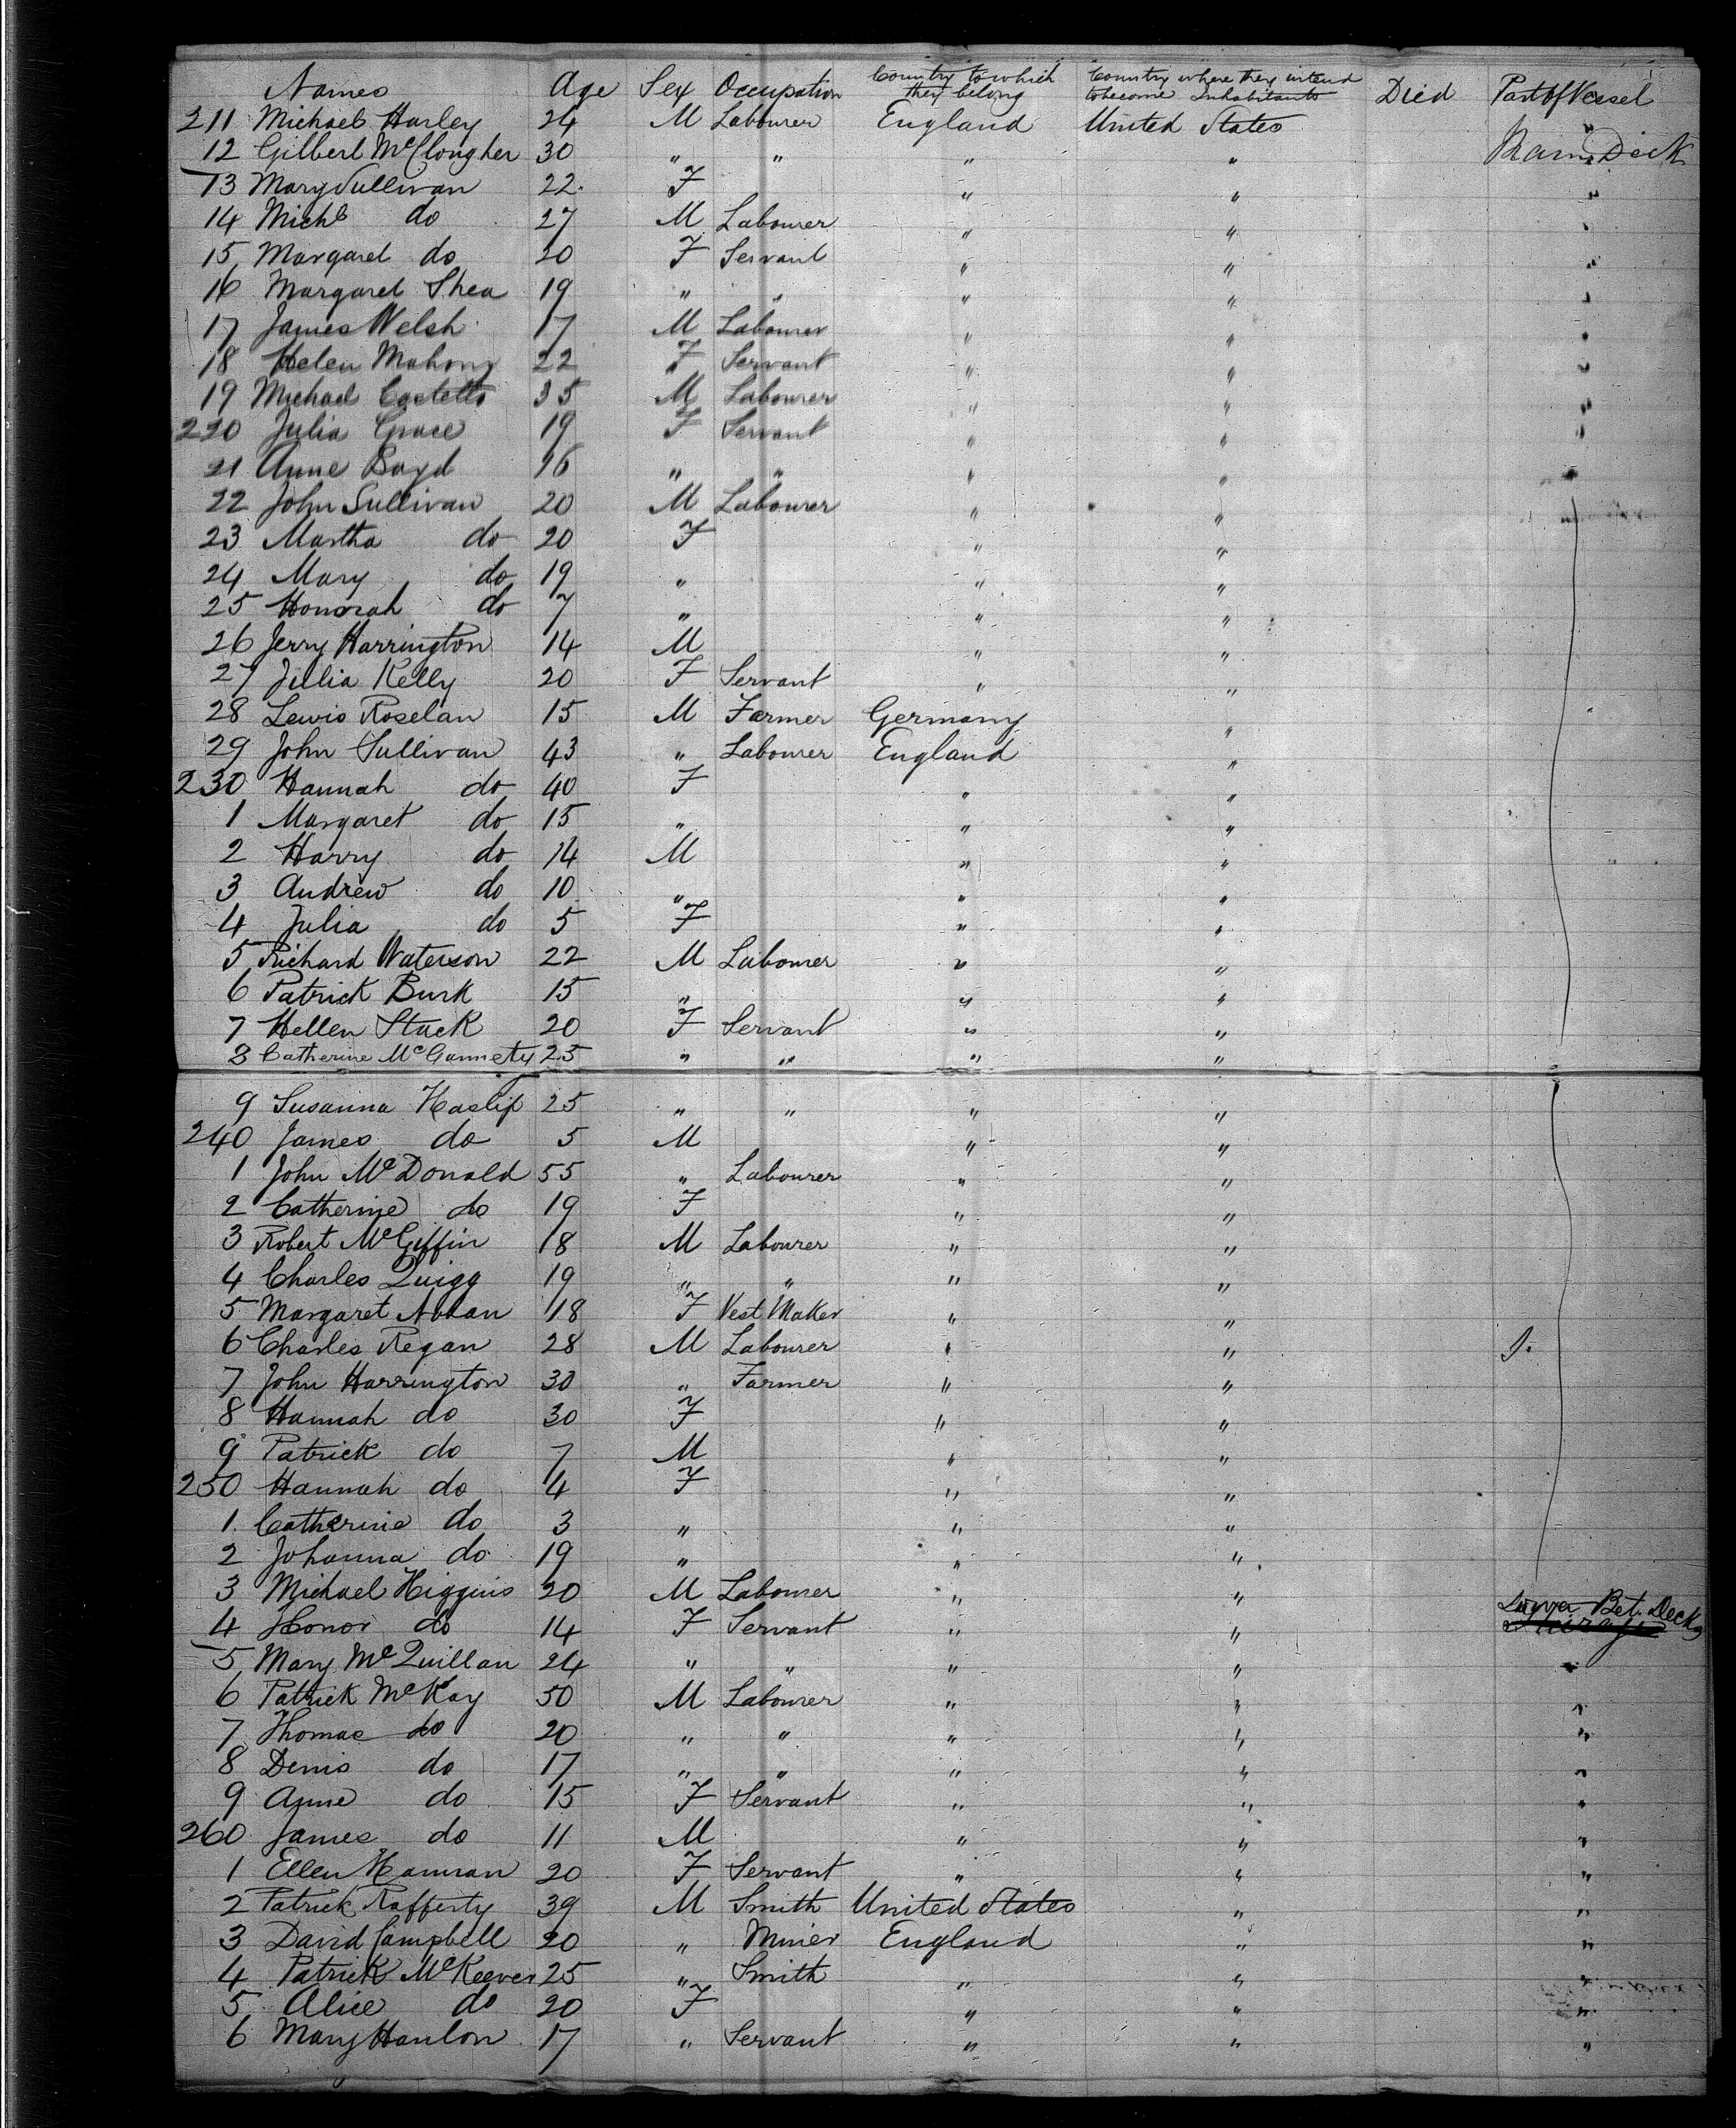 Names Age Sex Occupation Country to which they belong Country where they intend to become Inhabitants Died Part of Vessel
211 Michael Harley 24 M Labourer England United States "
12 Gilbert McClougher 30 " " " " Main Deck
13 Mary Sullivan 22 F " " "
14 Michl do 27 M Labourer " " "
15 Margaret do 20 F Servant " " "
16 Margaret Shea 19 " " " " "
17 James Welsh 17 M Labourer " " "
18 Helen Mahony 22 F Servant " " "
19 Michael Costello 35 M Labourer " " "
220 Julia Grace 19 F Servant " " "
21 Anne Boyd 16 " " " " "
22 John Sullivan 20 M Labourer " "
23 Martha do 20 F " "
24 Mary do 19 " " "
25 Honorah do 7 " " "
26 Jerry Harrington 14 M " "
27 Julia Kelly 20 F Servant " "
28 Lewis Roselan 15 M Farmer Germany "
29 John Sullivan 43 " Labourer England "
230 Hannah do 40 F " "
1 Margaret do 15 " " "
2 Harry do 14 M " "
3 Andrew do 10 " " "
4 Julia do 5 F " "
5 Richard Waterson 22 M Labourer " "
6 Patrick Burk 15 " " "
7 Hellen Stack 20 F Servant " "
8 Catherine McGannety 25 " " " "
9 Susanna Haslip 25 " " " "
240 James do 5 M " "
1 John McDonald 55 " Labourer " "
2 Catherine do 19 F " "
3 Robert McGiffin 18 M Labourer " "
4 Charles Quigg 19 " " " "
5 Margaret 18 F Vest Maker " "
6 Charles Regan 28 M Labourer " "
7 John Harrington 30 " Farmer " "
8 Hannah do 30 F " "
9 Patrick do 7 M " "
250 Hannah do 4 F " "
1 Catherine do 3 " " "
2 Johanna do 19 " " "
3 Michael Higgins 20 M Labourer " "
4 Honor do 14 F Servant " " Bet. Decks
5 Mary McQuillan 24 " " " " "
6 Patrick McKay 50 M Labourer " " "
7 Thomas do 20 " " " " "
8 Denis do 17 " " " " "
9 Anne do 15 F Servant " " "
260 James do 11 M " " "
1 Ellen Hannan 20 F Servant " " "
2 Patrick Rafferty 39 M Smith United States " "
3 David Campbell 20 " Miner England " "
4 Patrick McKeever 25 " Smith " " "
5 Alice do 20 F " " "
6 Mary Hanlon 17 " Servant " " "